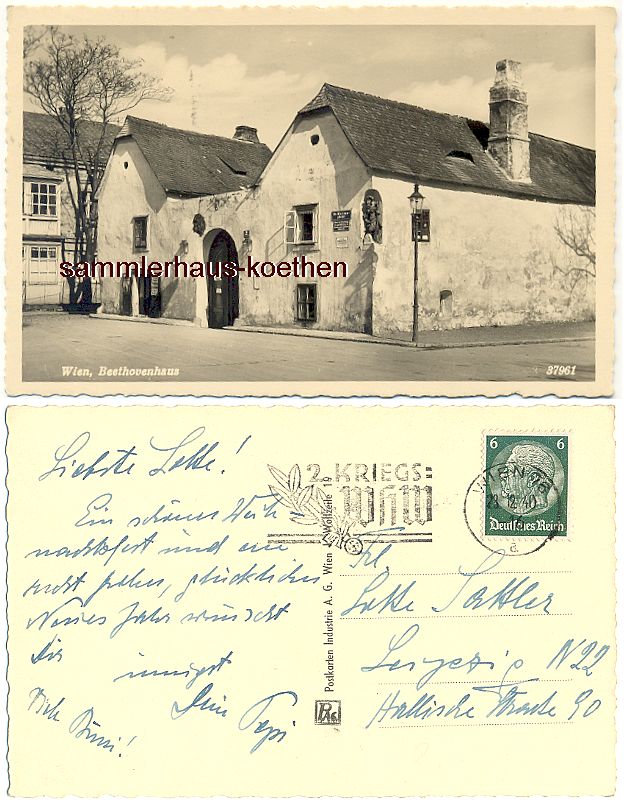 sammlerhaus-koethen
Wien, Beethovenhaus
37961
Liebste Lotte!
Ein schönes Weih-
nachtsfest und ein
recht frohes, glückliches
Neues Jahr wünscht
Dir
innigst
Dein Pepi
Dich Bussi!
2. KRIEGS:
WHW
6 6
Deutsches Reich
WIEN
12. 40
d
Postkarten Industrie A. G. Wien Wollzeile 19
PAG
Frl.
Lotte Sattler
Leipzig N 22
Hallische Strasse 90